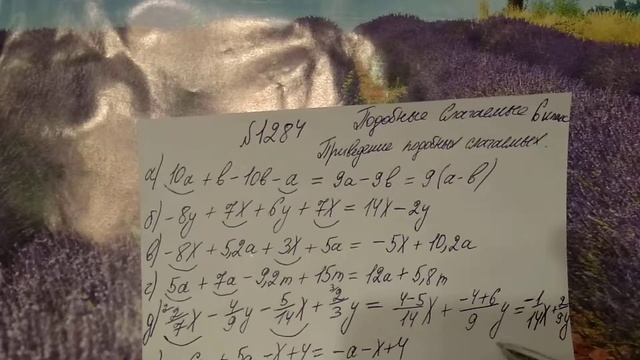 N1284
Подобные слагаемые 6 класс
Приведение подобных слагаемых.
а) 10a + b - 10b - a = 9a - 9b = 9(a - b)
б) -8y + 7x + 6y + 7x = 14x - 2y
в) -8x + 5,2a + 3x + 5a = -5x + 10,2a
г) 5a + 7a - 9,2m + 15m = 12a + 5,8m
д) 2/7 x - 4/9 y - 5/14 x + 2/3 y = 4-5/14 x + -4+6/9 y = -1/14 x + 2/9 y
+ 5a - x + 4 = -a - x + 4